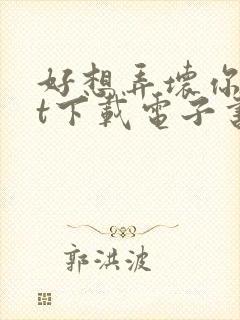 好想弄壞你
t下載電子書
郭洪波